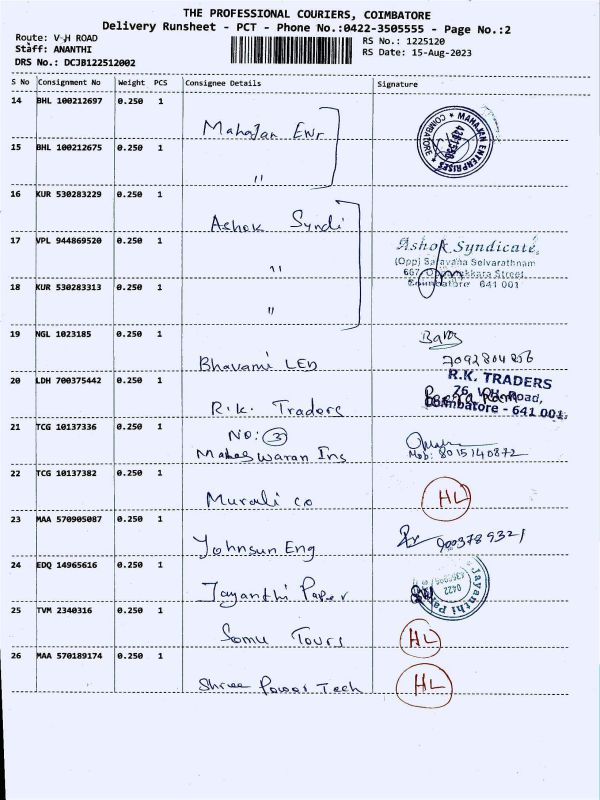 THE PROFESSIONAL COURIERS, COIMBATORE
Delivery Runsheet - PCT - Phone No.:0422-3505555 - Page No.:2
Route: V H ROAD
Staff: ANANTHI
DRS No.: DCJB122512002
RS No.: 1225120
RS Date: 15-Aug-2023
S No Consignment No Weight PCS Consignee Details Signature
14 BHL 100212697 0.250 1
Mahajan Enr
MAHAJAN ENTERPRISES * COIMBATORE *
15 BHL 100212675 0.250 1
"
16 KUR 530283229 0.250 1
Ashok Syndi
17 VPL 944869520 0.250 1
"
Ashok Syndicate,
(Opp) Saravana Selvarathnam
Street,
Coimbatore 641 001
18 KUR 530283313 0.250 1
"
19 NGL 1023185 0.250 1
Bhavani LED
20 LDH 700375442 0.250 1
R.K. Traders
R.K. TRADERS
76, V.H. Road,
Coimbatore - 641 001.
21 TCG 10137336 0.250 1
No: 3
Maheswaran Ins
Mob: 8015140872
22 TCG 10137382 0.250 1
Murali co
HL
23 MAA 570905087 0.250 1
Johnsun Eng
9003789321
24 EDQ 14965616 0.250 1
Jayanthi Paper
Jayanthi Pa
0422
25 TVM 2340316 0.250 1
Somu Tours
HL
26 MAA 570189174 0.250 1
Shree Power Tech
HL